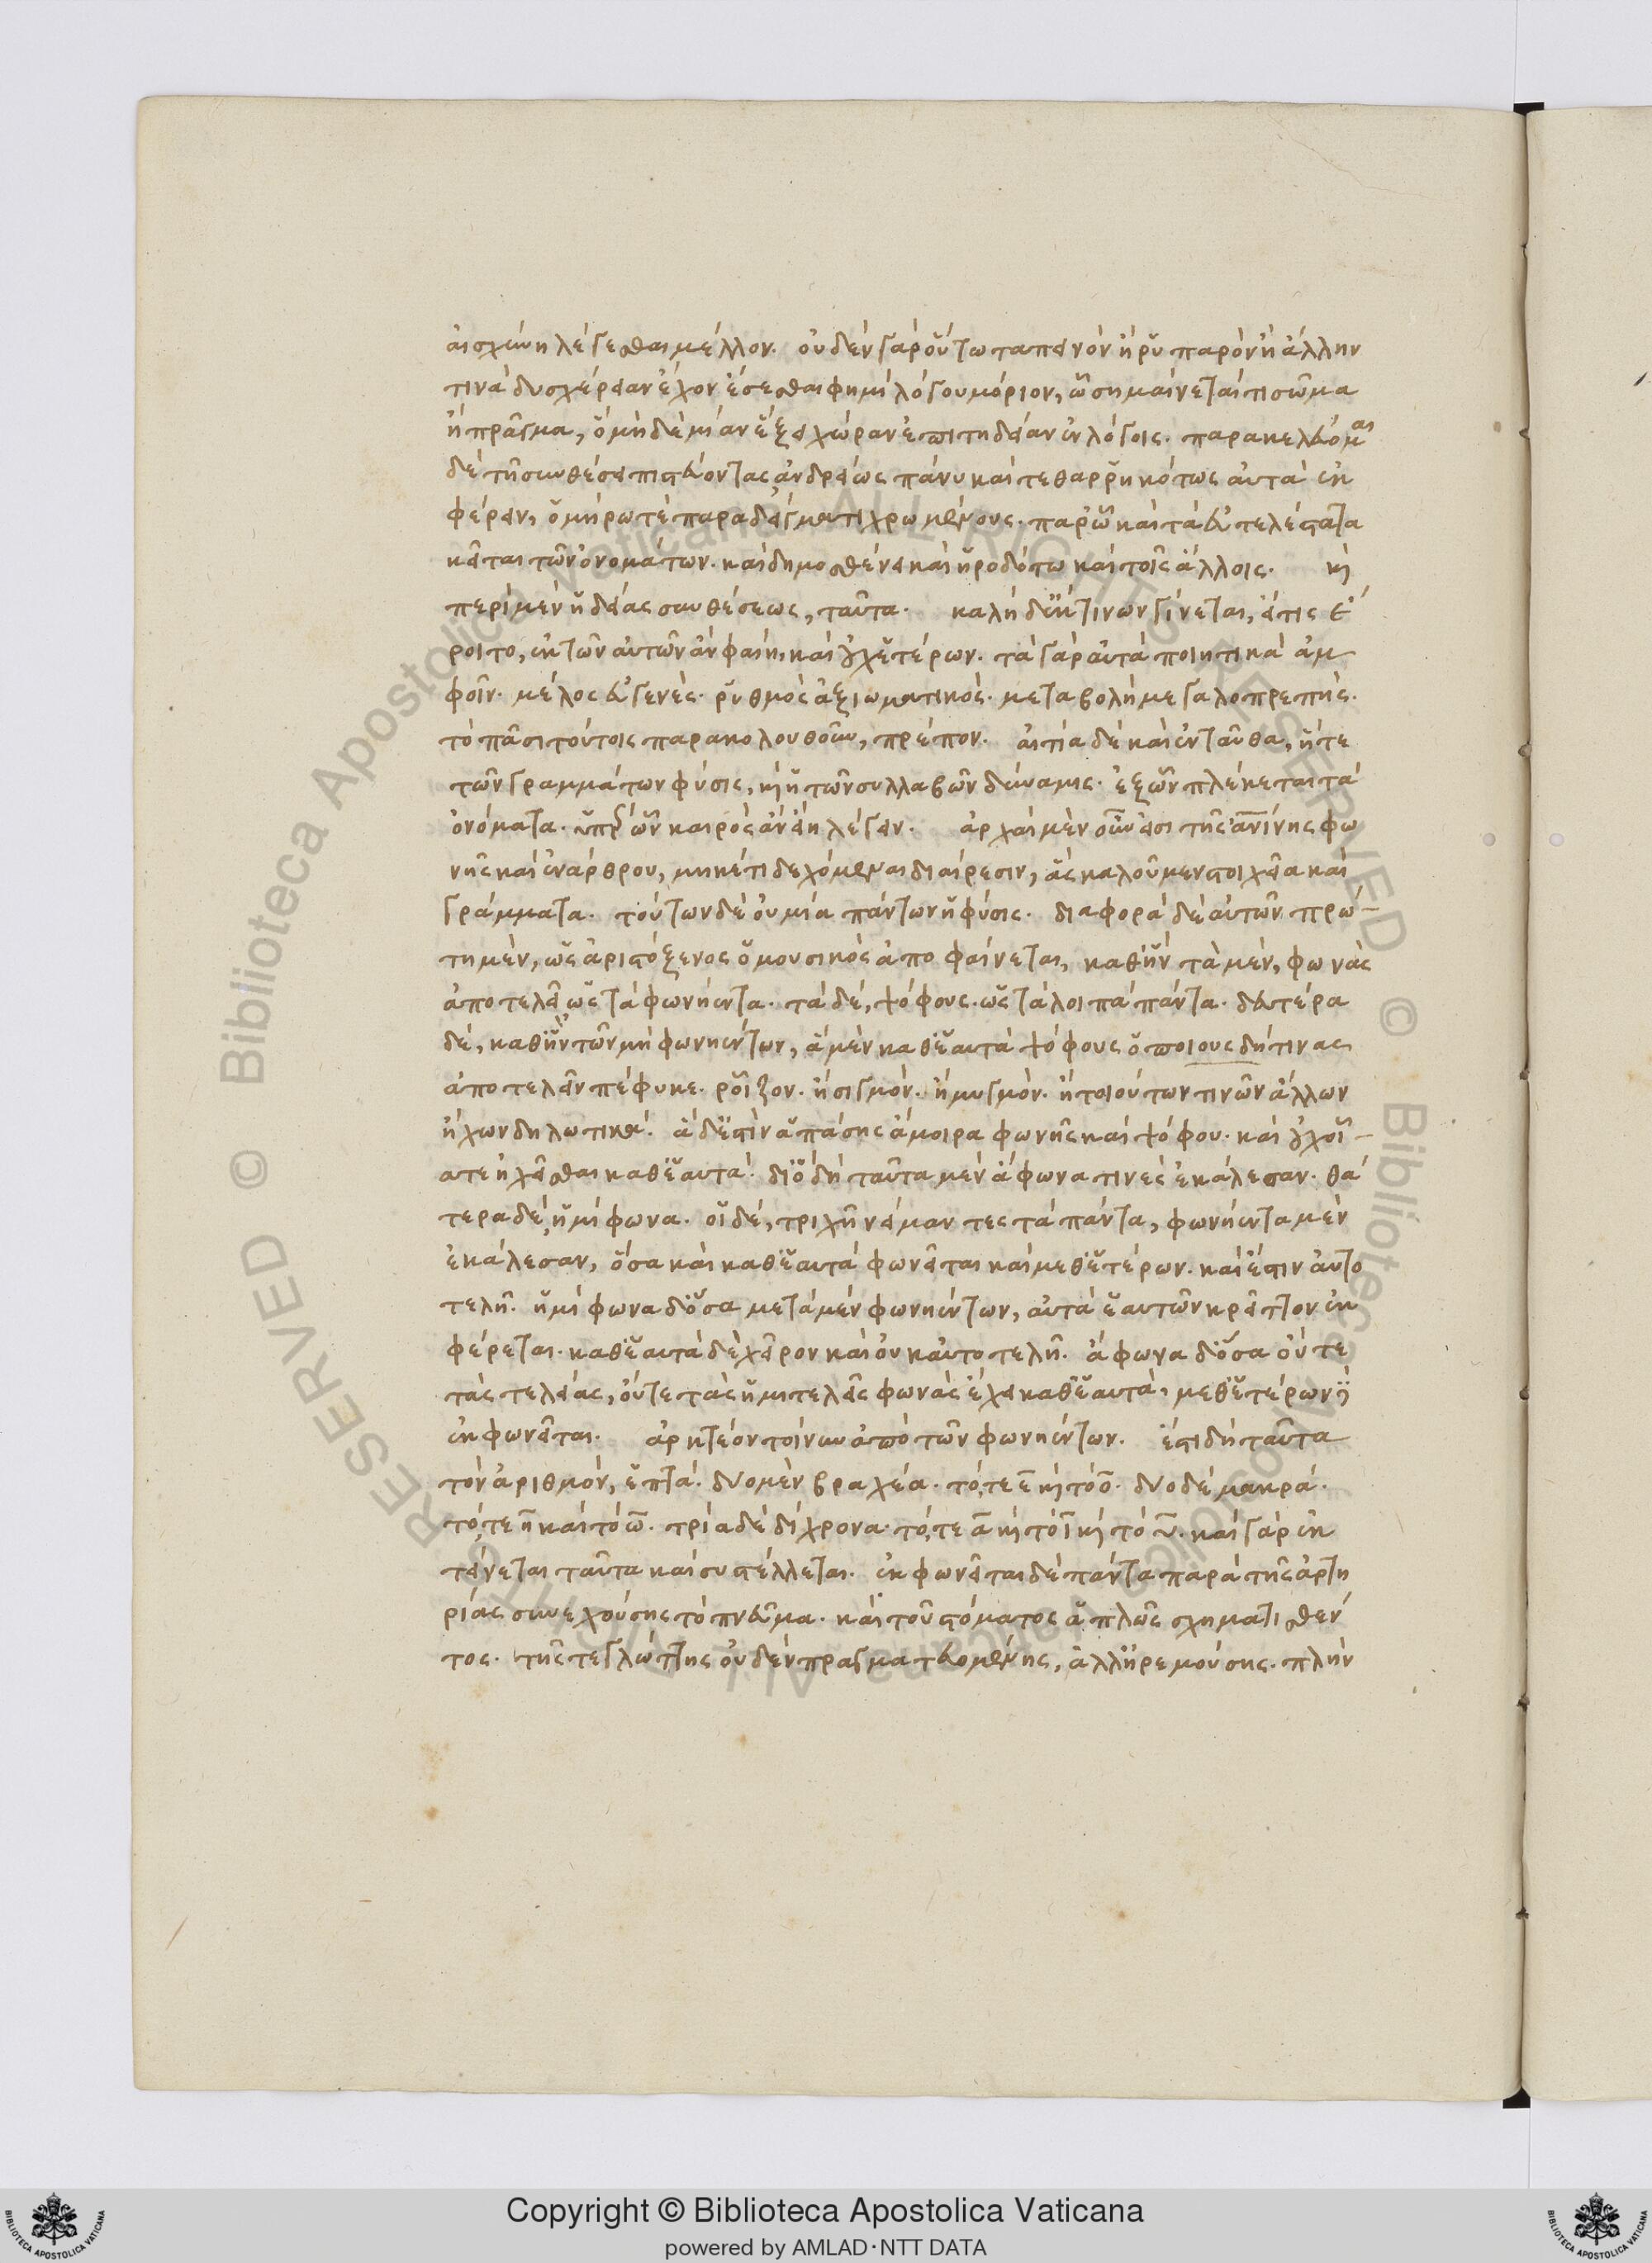 αἰσχύνη λέγεσθαι μέλλον. οὐδὲν γὰρ οὕτω ταπεινὸν ἢ ῥυπαρὸν ἢ ἄλλην
τινὰ δυσχέρειαν ἔχον ἔσεσθαι φημὶ λόγου μόριον, ᾧ σημαίνεταί τι σῶμα
ἢ πρᾶγμα, ὃ μηδεμίαν ἕξει χώραν ἐπιτηδείαν ἐν λόγοις. παρακελεύομαι
δὲ τῇ συνθέσει πιστεύοντας ἀνδρείως πάνυ καὶ τεθαρρηκότως αὐτὰ ἐκ
φέρειν, ὁμήρω τὲ παραδείγματι χρωμένους. παρ' ὧ καὶ τὰ εὐτελέστατα
κεῖται τῶν ὀνομάτων. καὶ δημοσθένει καὶ ἡροδότω καὶ τοῖς ἄλλοις. κὶ
περὶ μὲν ἡδείας συνθέσεως, ταῦτα. καλὴ δ' ἐκ τίνων γίνεται, εἴ τις ἔ
ροιτο, ἐκ τῶν αὐτῶν ἂν φαίην, καὶ οὐχ ἑτέρων. τὰ γὰρ αὐτὰ ποιητικὰ ἀμ
φοῖν. μέλος εὐγενὲς. ῥυθμὸς ἀξιωματικὸς. μεταβολὴ μεγαλοπρεπὴς.
τὸ πᾶσι τούτοις παρακολουθοῦν, πρέπον. αἰτία δὲ καὶ ἐνταῦθα, ἥ τε
τῶν γραμμάτων φύσις, κὶ ἡ τῶν συλλαβῶν δύναμις. ἐξ ὧν πλέκεται τὰ
ὀνόματα. ὑπὲρ ὧν καιρὸς ἂν εἴη λέγειν. ἀρχαὶ μὲν οὖν εἰσι τῆς ἀνίνης φω
νῆς καὶ ἐνάρθρου, μηκέτι δεχόμεναι διαίρεσιν, ἃς καλοῦμεν στοιχεῖα καὶ
γράμματα. τούτων δὲ οὐ μία πάντων ἡ φύσις. διαφορὰ δὲ αὐτῶν πρώ-
τη μὲν, ὡς ἀριστόξενος ὁ μουσικὸς ἀποφαίνεται, καθ' ἣν τὰ μὲν, φωνὰς
ἀποτελεῖ, ὡς τὰ φωνήεντα. τὰ δέ, ψόφους. ὡς τὰ λοιπὰ πάντα. δευτέρα
δέ, καθ' ἣν τῶν μὴ φωνηέντων, ἃ μὲν καθ' ἑαυτὰ ψόφους ὁποιουςδήτινας
ἀποτελεῖν πέφυκε. ῥοῖζον. ἢ σιγμὸν. ἢ μυγμὸν. ἢ τοιούτων τινῶν ἄλλων
ἤχων δηλωτικά. ἃ δ' ἐστὶν ἁπάσης ἄμοιρα φωνῆς καὶ ψόφου. καὶ οὐχ οἷ-
α τε ἠχεῖσθαι καθ' ἑαυτά. διὸ δὴ ταῦτα μὲν ἄφωνα τινὲς ἐκάλεσαν. θά
τερα δὲ, ἡμίφωνα. οἱ δὲ, τριχῆ νείμαντες τὰ πάντα, φωνήεντα μὲν
ἐκάλεσαν, ὅσα καὶ καθ' ἑαυτὰ φωνεῖται καὶ μεθ' ἑτέρων. καὶ ἔστιν αὐτο
τελῆ. ἡμίφωνα δ' ὅσα μετὰ μὲν φωνηέντων, αὐτὰ ἑαυτῶν κρεῖττον ἐκ
φέρεται. καθ' ἑαυτὰ δὲ χεῖρον καὶ οὐκ αὐτοτελῆ. ἄφωνα δ' ὅσα οὔτε
τὰς τελείας, οὔτε τὰς ἡμιτελεῖς φωνὰς ἔχει καθ' ἑαυτὰ, μεθ' ἑτέρων δ'
ἐκφωνεῖται. ἀρκτέον τοίνυν ἀπὸ τῶν φωνηέντων. ἔστι δὴ ταῦτα
τὸν ἀριθμὸν, ἑπτά. δύο μὲν βραχέα. τό, τε ε̄ κὶ τὸ ο̄. δύο δὲ μακρά.
τό, τε η̄ καὶ τὸ ω̄. τρία δὲ δίχρονα. τό, τε ᾱ κὶ τὸ ῑ κὶ τὸ ῡ. καὶ γὰρ ἐκ
τείνεται ταῦτα καὶ συστέλλεται. ἐκφωνεῖται δὲ πάντα παρὰ τῆς ἀρτη
ρίας συνεχούσης τὸ πνεῦμα. καὶ τοῦ στόματος ἁπλῶς σχηματισθέν
τος. τῆς τε γλώττης οὐδὲν πραγματευομένης, ἀλλ' ἠρεμούσης. πλὴν
© Biblioteca Apostolica Vaticana ALL RIGHTS RESERVED © Biblioteca Apostolica Vaticana ALL RIGHTS RESERVED
Copyright © Biblioteca Apostolica Vaticana
powered by AMLAD·NTT DATA
BIBLIOTECA APOSTOLICA VATICANA
BIBLIOTECA APOSTOLICA VATICANA